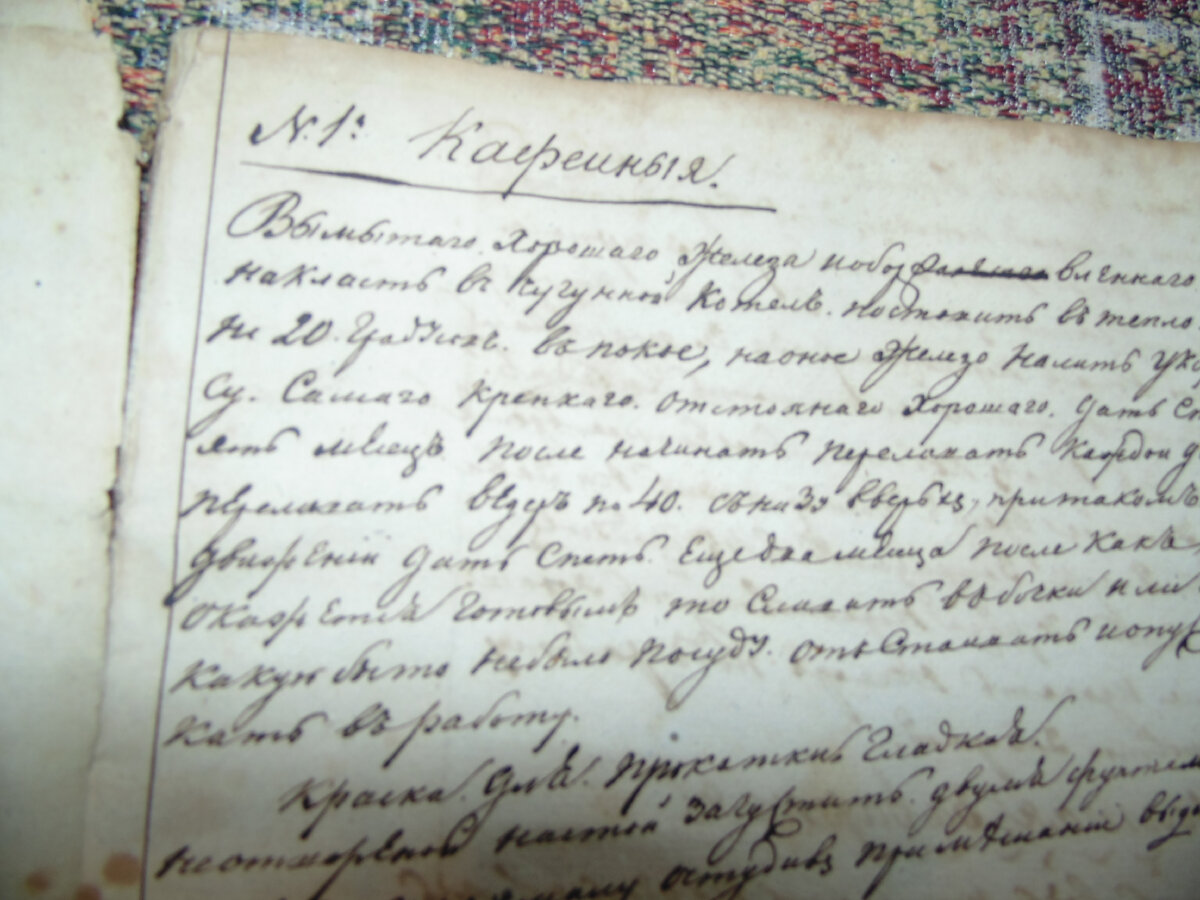 N. 1. Кафейныя.
Вымытаго. Хорошаго Железа необо вленнаго
накласть въ чугунной Котелъ. постановить въ тепло
не 20. Градусахъ. въ покое, на оное Железо налить Укс
су. Самаго Крепкаго. отстояннаго Хорошаго. дать С
ять месецъ после начинать перелажать Каждой д
перелажать ведеръ по 40. съ низу вверьхъ, притакомъ
движении дать Спеть. Еще два месеца после Какъ
окажется Готовымъ то Сливать въ бочки или
какую быто небыло посуду. отъ Стаивать и опус
кать въ работу.
Краска. для. Прокатки Гладкой.
настой загустить. двумя фунтами
остудивъ